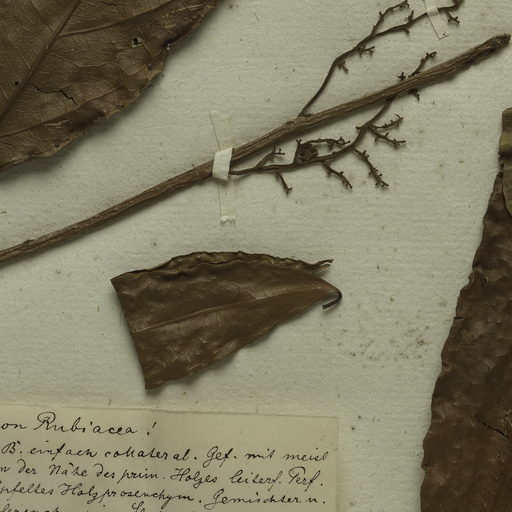 on Rubiacea!
B. einfach collateral. Gef. mit meist
n der Nähe des prim. Holzes leiterf. Perf.
pfeltes Holzprosenchym. Gemischter u.